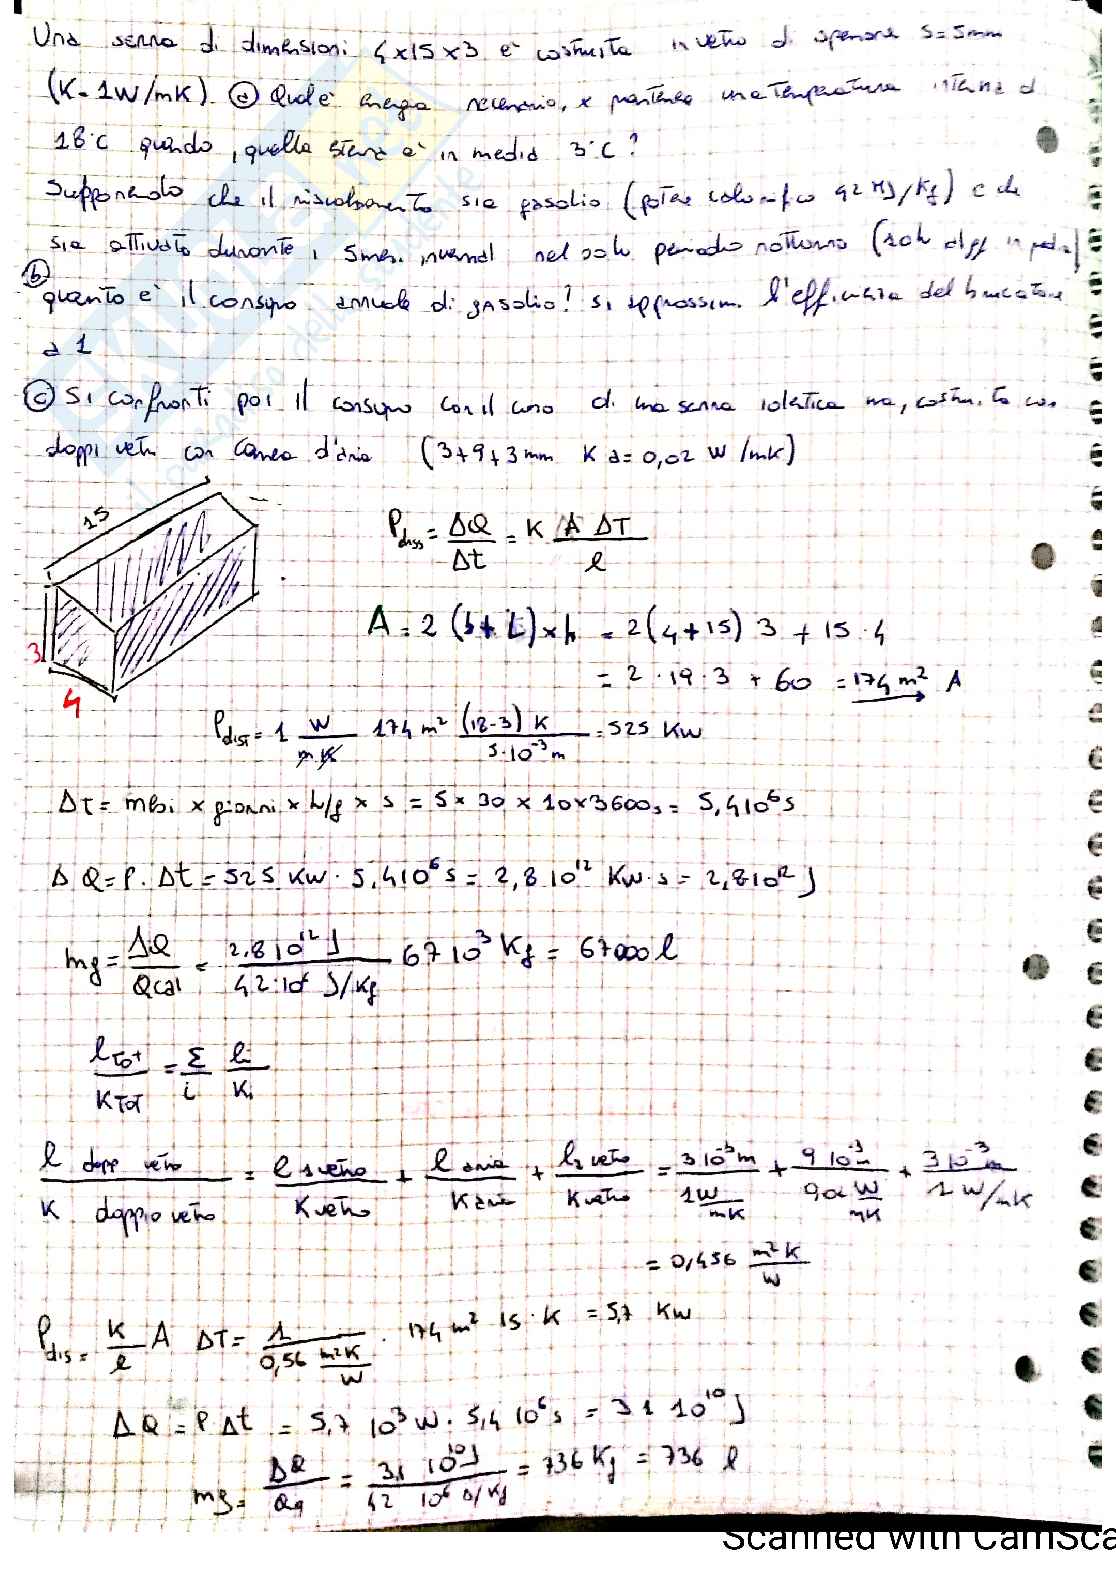 Una serra di dimensioni 4x15x3 è costruita in vetro di spessore S=5mm
(K=1W/mK). ⓐ Qual è energia necessaria, x mantenere una temperatura interna di
18°C quando, quella esterna è in media 3°C?
Supponendo che il riscaldamento sia gasolio (potere calorifico 42 MJ/Kg) e che
sia attivato durante i 5 mesi invernali nel solo periodo notturno (10h
ⓑ
quanto è il consumo annuale di gasolio? si approssimi l'efficienza del bruciatore
a 1
ⓒ Si confronti poi il consumo con il caso di una serra identica ma, costruita con
doppi vetri con camera d'aria (3+9+3mm Ka=0,02 W/mK)
15
3
4
Pdiss = ΔQ/Δt = K A ΔT/l
A = 2(b+L)xh = 2(4+15)3 + 15·4
= 2·19·3 + 60 = 174 m² A
Pdiss = 1 W/mK 174 m² (18-3)K/5·10⁻³m = 525 KW
Δt = mesi x giorni x h/g x s = 5x30x10x3600s = 5,4 10⁶ s
ΔQ = P·Δt = 525 KW · 5,4 10⁶ s = 2,8 10¹² KW·s = 2,8 10¹² J
mg = ΔQ/Qcal = 2,8 10¹² J/42·10⁶ J/Kg 67 10³ Kg = 67000 l
lTot/KTot = Σi li/Ki
l dopp vetro/K doppio vetro = l1 vetro/Kvetro + l aria/Karia + l2 vetro/Kvetro = 3 10⁻³m/1W/mK + 9 10⁻³m/0,02 W/mK + 3 10⁻³m/1 W/mK
= 0,456 m²K/W
Pdis = K/l A ΔT = 1/0,56 m²K/W · 174 m² 15·K = 5,7 KW
ΔQ = P Δt = 5,7 10³ W · 5,4 10⁶ s = 3,1 10¹⁰ J
mg = ΔQ/Qg = 3,1 10¹⁰ J/42 10⁶ J/Kg = 736 Kg = 736 l
Scanned with CamSca